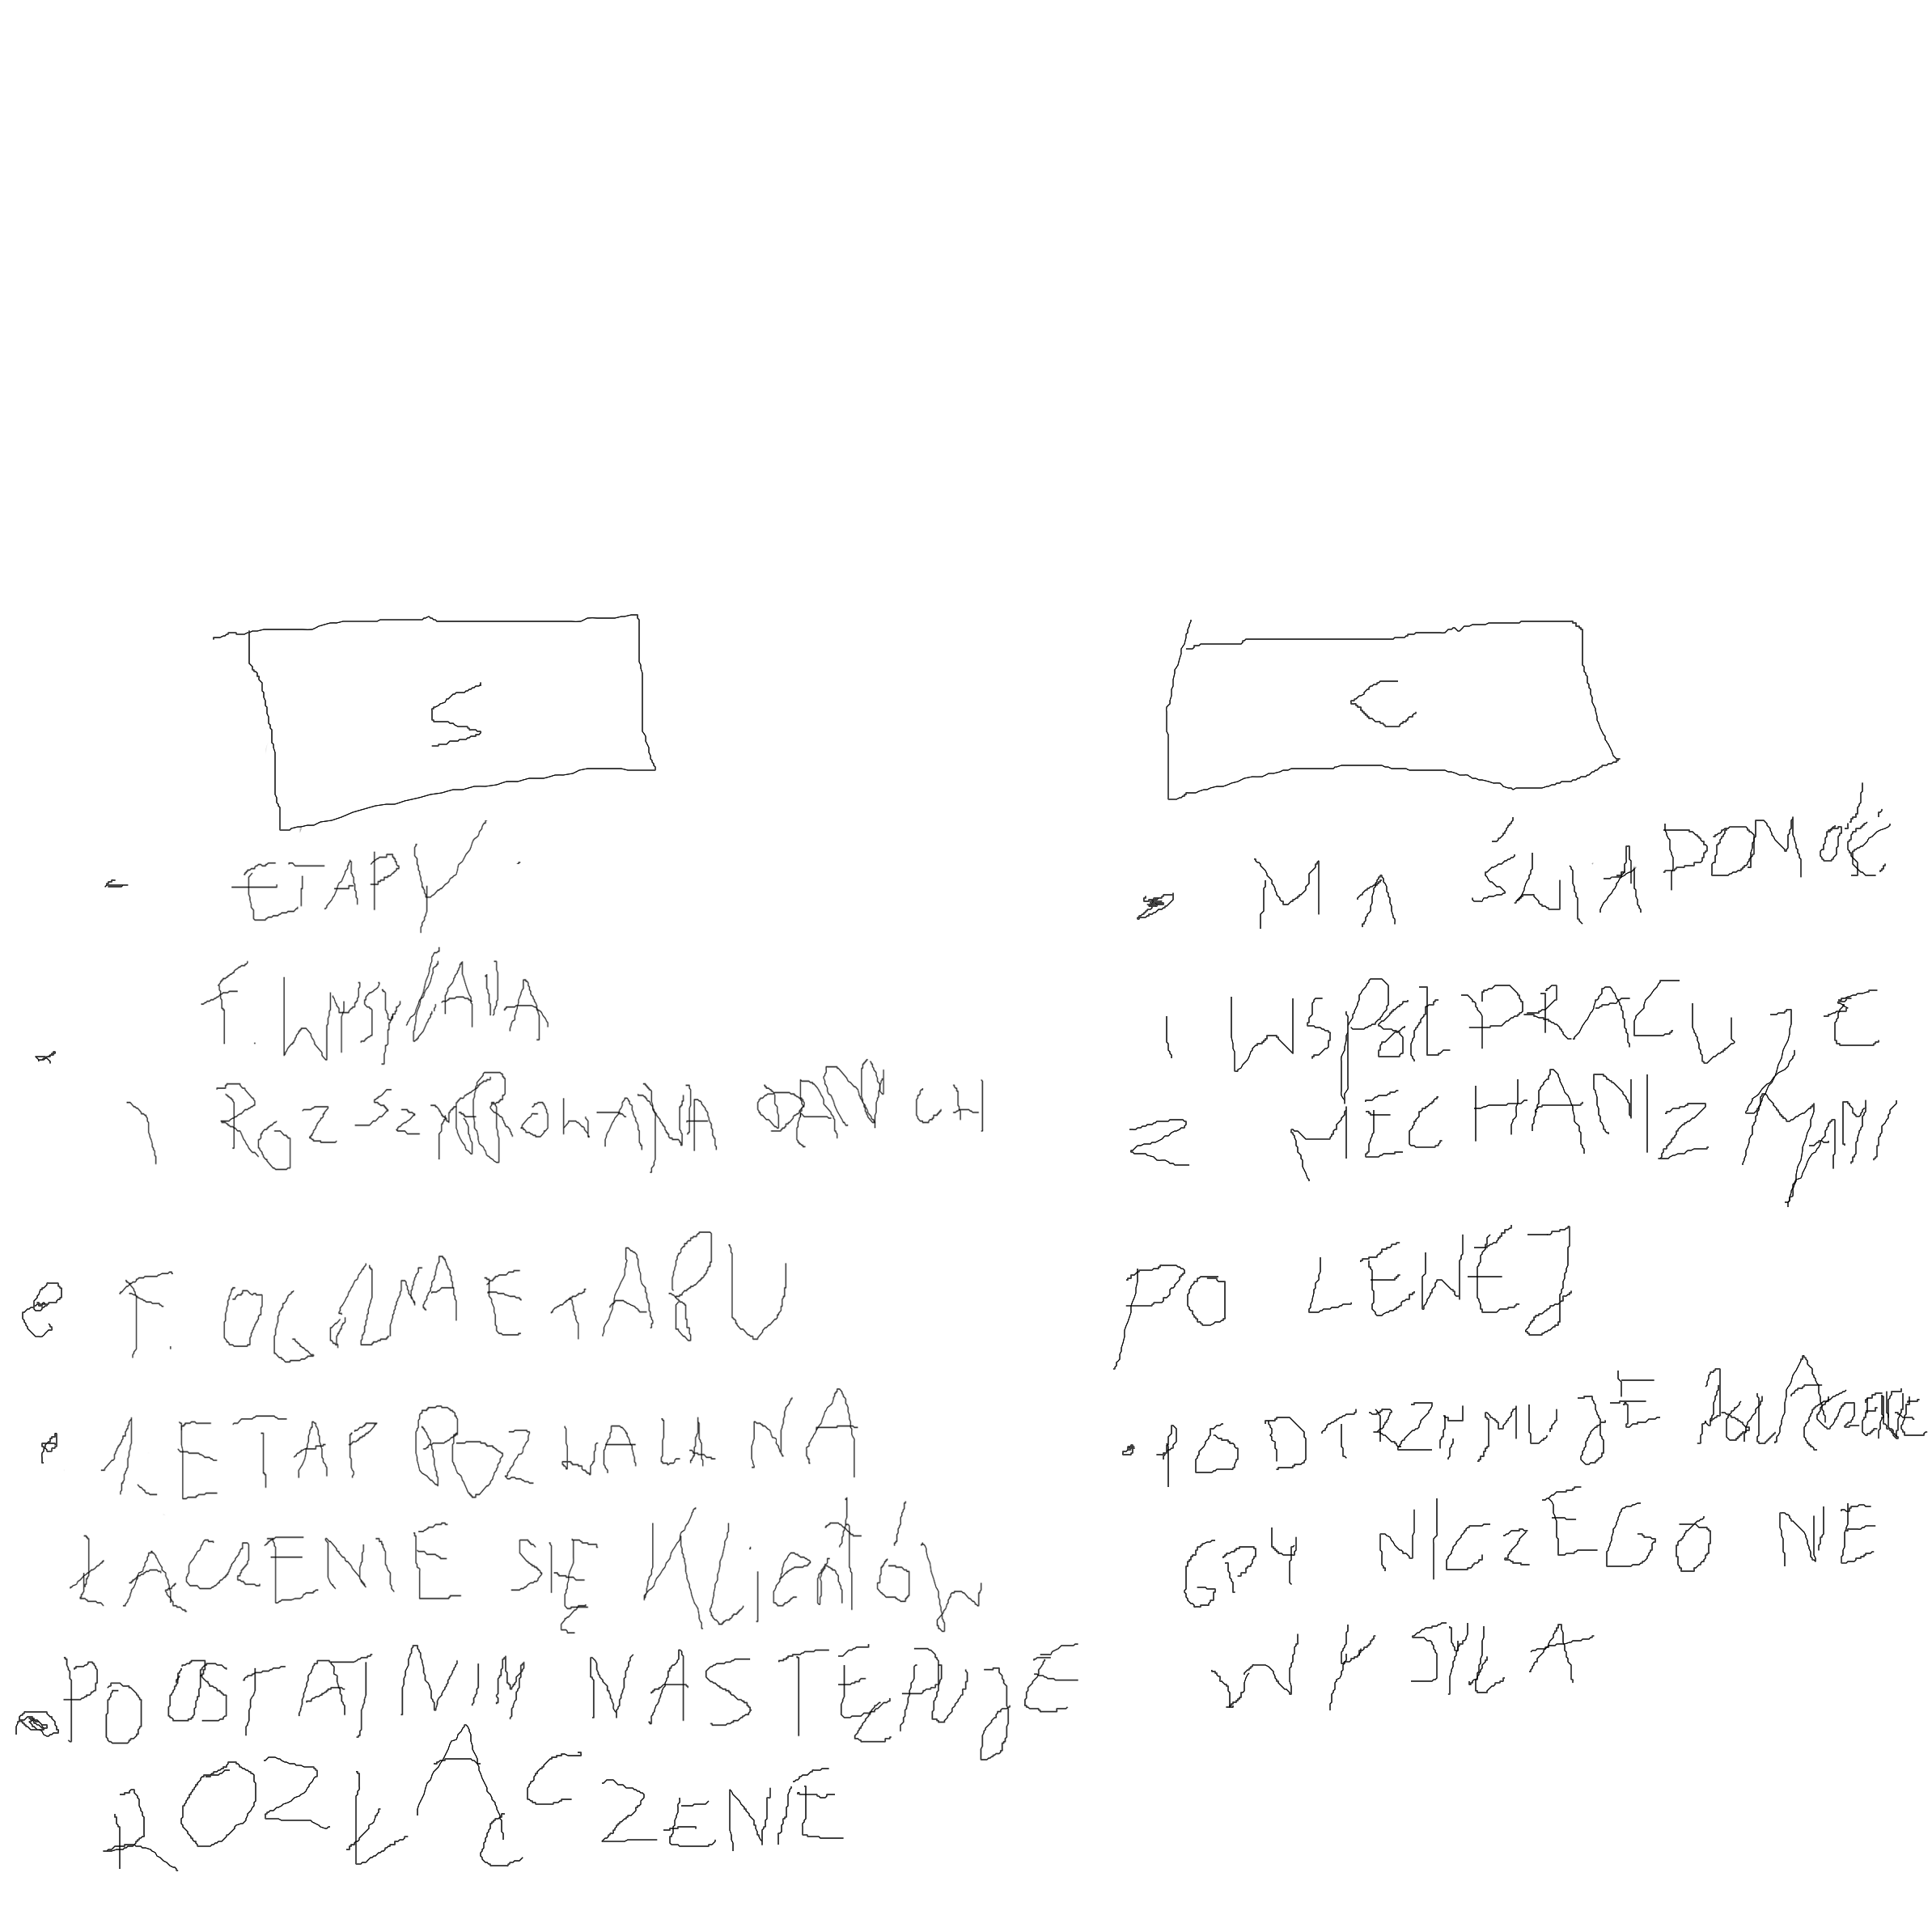 S
ETAPY
F. WYSYŁANIA
ROZSZYFROWANIA DANYCH
F. ETAPU
1. ETAP POZWALA NA
ŁĄCZENIE SIĘ KLientów
PO OSTATNIM NASTĘPUJE
ROZŁĄCZENIE
C
MA ŚWIADOMOŚĆ
I WSPÓŁPRACUJE
Z MECHANIZMAMI
PO LEWEJ
PODTRZYMUJE POŁĄCZENIE
GDY NICZEGO NIE
WYSYŁA